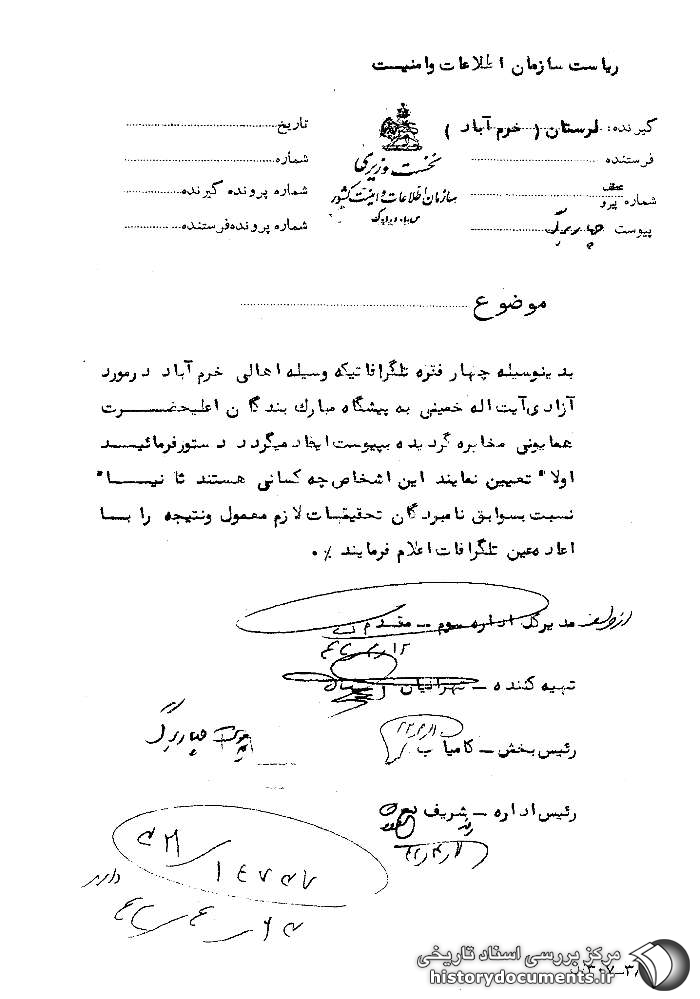 ریاست سازمان اطلاعات وامنیت
گیرنده: لرستان ( خرم آباد )
فرستنده
شماره پیرو
پیوست چهار برگ
نخست وزیری
سازمان اطلاعات و امنیت کشور
س.ا.و.ا.ک
تاریخ
شماره
شماره پرونده گیرنده
شماره پرونده فرستنده
موضوع
بدینوسیله چهار فقره تلگرافاتیکه وسیله اهالی خرم آباد درمورد
آزادی آیت اله خمینی به پیشگاه مبارک بندگان اعلیحضرت
همایونی مخابره گردیده بپیوست ایفاد میگردد دستورفرمائید
اولا" تعیین نمایند این اشخاص چه کسانی هستند ثانیا"
نسبت بسوابق نامبردگان تحقیقات لازم معمول ونتیجه را با
اعاده عین تلگرافات اعلام فرمایند ٪.
از طرف مدیرکل اداره سوم ــ مقدم
تهیه کننده ــ تهرانیان
رئیس بخش ــ کامیاب
چهار برگ
رئیس اداره ــ شریف
مرکز بررسی اسناد تاریخی
historydocuments.ir